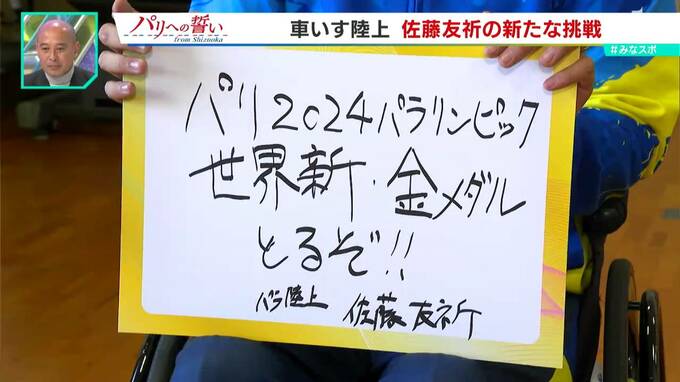 パリへの誓い
from Shizuoka
車いす陸上 佐藤友祈の新たな挑戦
#みなスポ
パリ2024パラリンピック
世界新・金メダル
とるぞ!!
パラ陸上 佐藤友祈